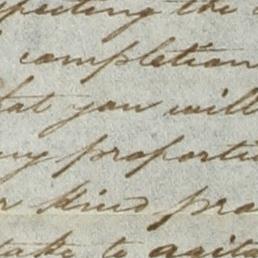 specting the
completion
that you will
my proporti
r kind pra
take to agita